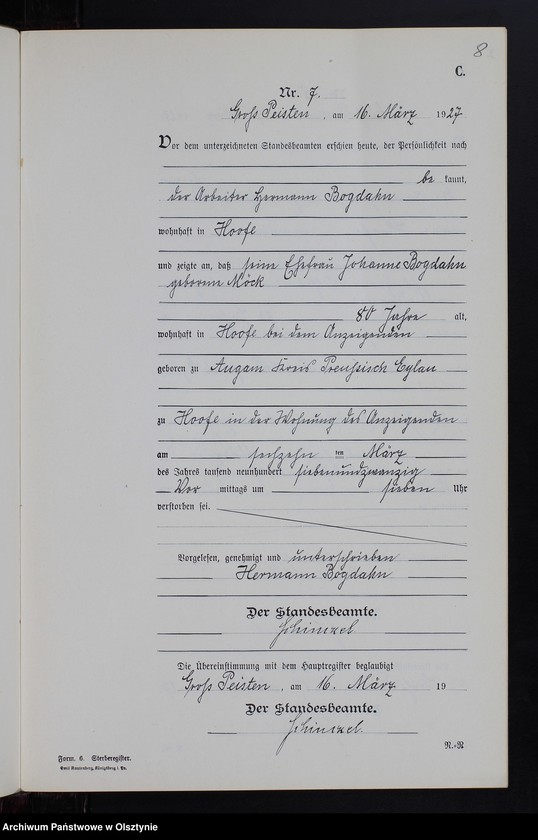 8
C.
Nr. 7.
Groß Peisten, am 16. März 1927
Vor dem unterzeichneten Standesbeamten erschien heute, der Persönlichkeit nach
be kannt,
der Arbeiter Hermann Bogdahn
wohnhaft in Hoofe
und zeigte an, daß seine Ehefrau Johanne Bogdahn
geborene Möck
80 Jahre alt,
wohnhaft in Hoofe bei dem Anzeigenden
geboren zu Augam Kreis Preußisch Eylau
zu Hoofe in der Wohnung des Anzeigenden
am sechzehn ten März
des Jahres tausend neunhundert siebenundzwanzig
Vor mittags um sieben Uhr
verstorben sei.
Vorgelesen, genehmigt und unterschrieben
Hermann Bogdahn
Der Standesbeamte.
Schinkel
Die Übereinstimmung mit dem Hauptregister beglaubigt
Groß Peisten, am 16. März 19
Der Standesbeamte.
Schinkel.
R.-R
Form. 6. Sterberegister.
Emil Rautenberg, Königsberg i. Pr.
Archiwum Państwowe w Olsztynie